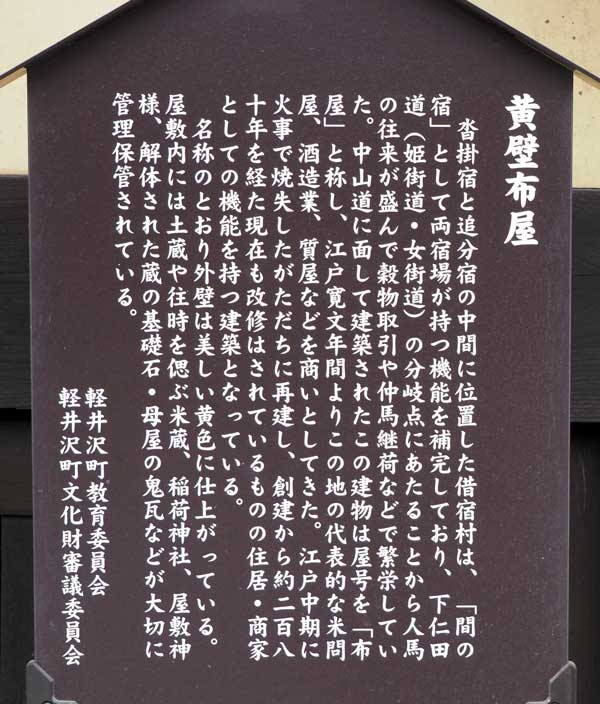 黄壁布屋
沓掛宿と追分宿の中間に位置した借宿村は、「間の
宿」として両宿場が持つ機能を補完しており、下仁田
道（姫街道・女街道）の分岐点にあたることから人馬
の往来が盛んで穀物取引や仲馬継荷などで繁栄してい
た。中山道に面して建築されたこの建物は屋号を「布
屋」と称し、江戸寛文年間よりこの地の代表的な米問
屋、酒造業、質屋などを商いとしてきた。江戸中期に
火事で焼失したがただちに再建し、創建から約二百八
十年を経た現在も改修はされているものの住居・商家
としての機能を持つ建築となっている。
名称のとおり外壁は美しい黄色に仕上がっている。
屋敷内には土蔵や往時を偲ぶ米蔵、稲荷神社、屋敷神
様、解体された蔵の基礎石・母屋の鬼瓦などが大切に
管理保管されている。
軽井沢町教育委員会
軽井沢町文化財審議委員会